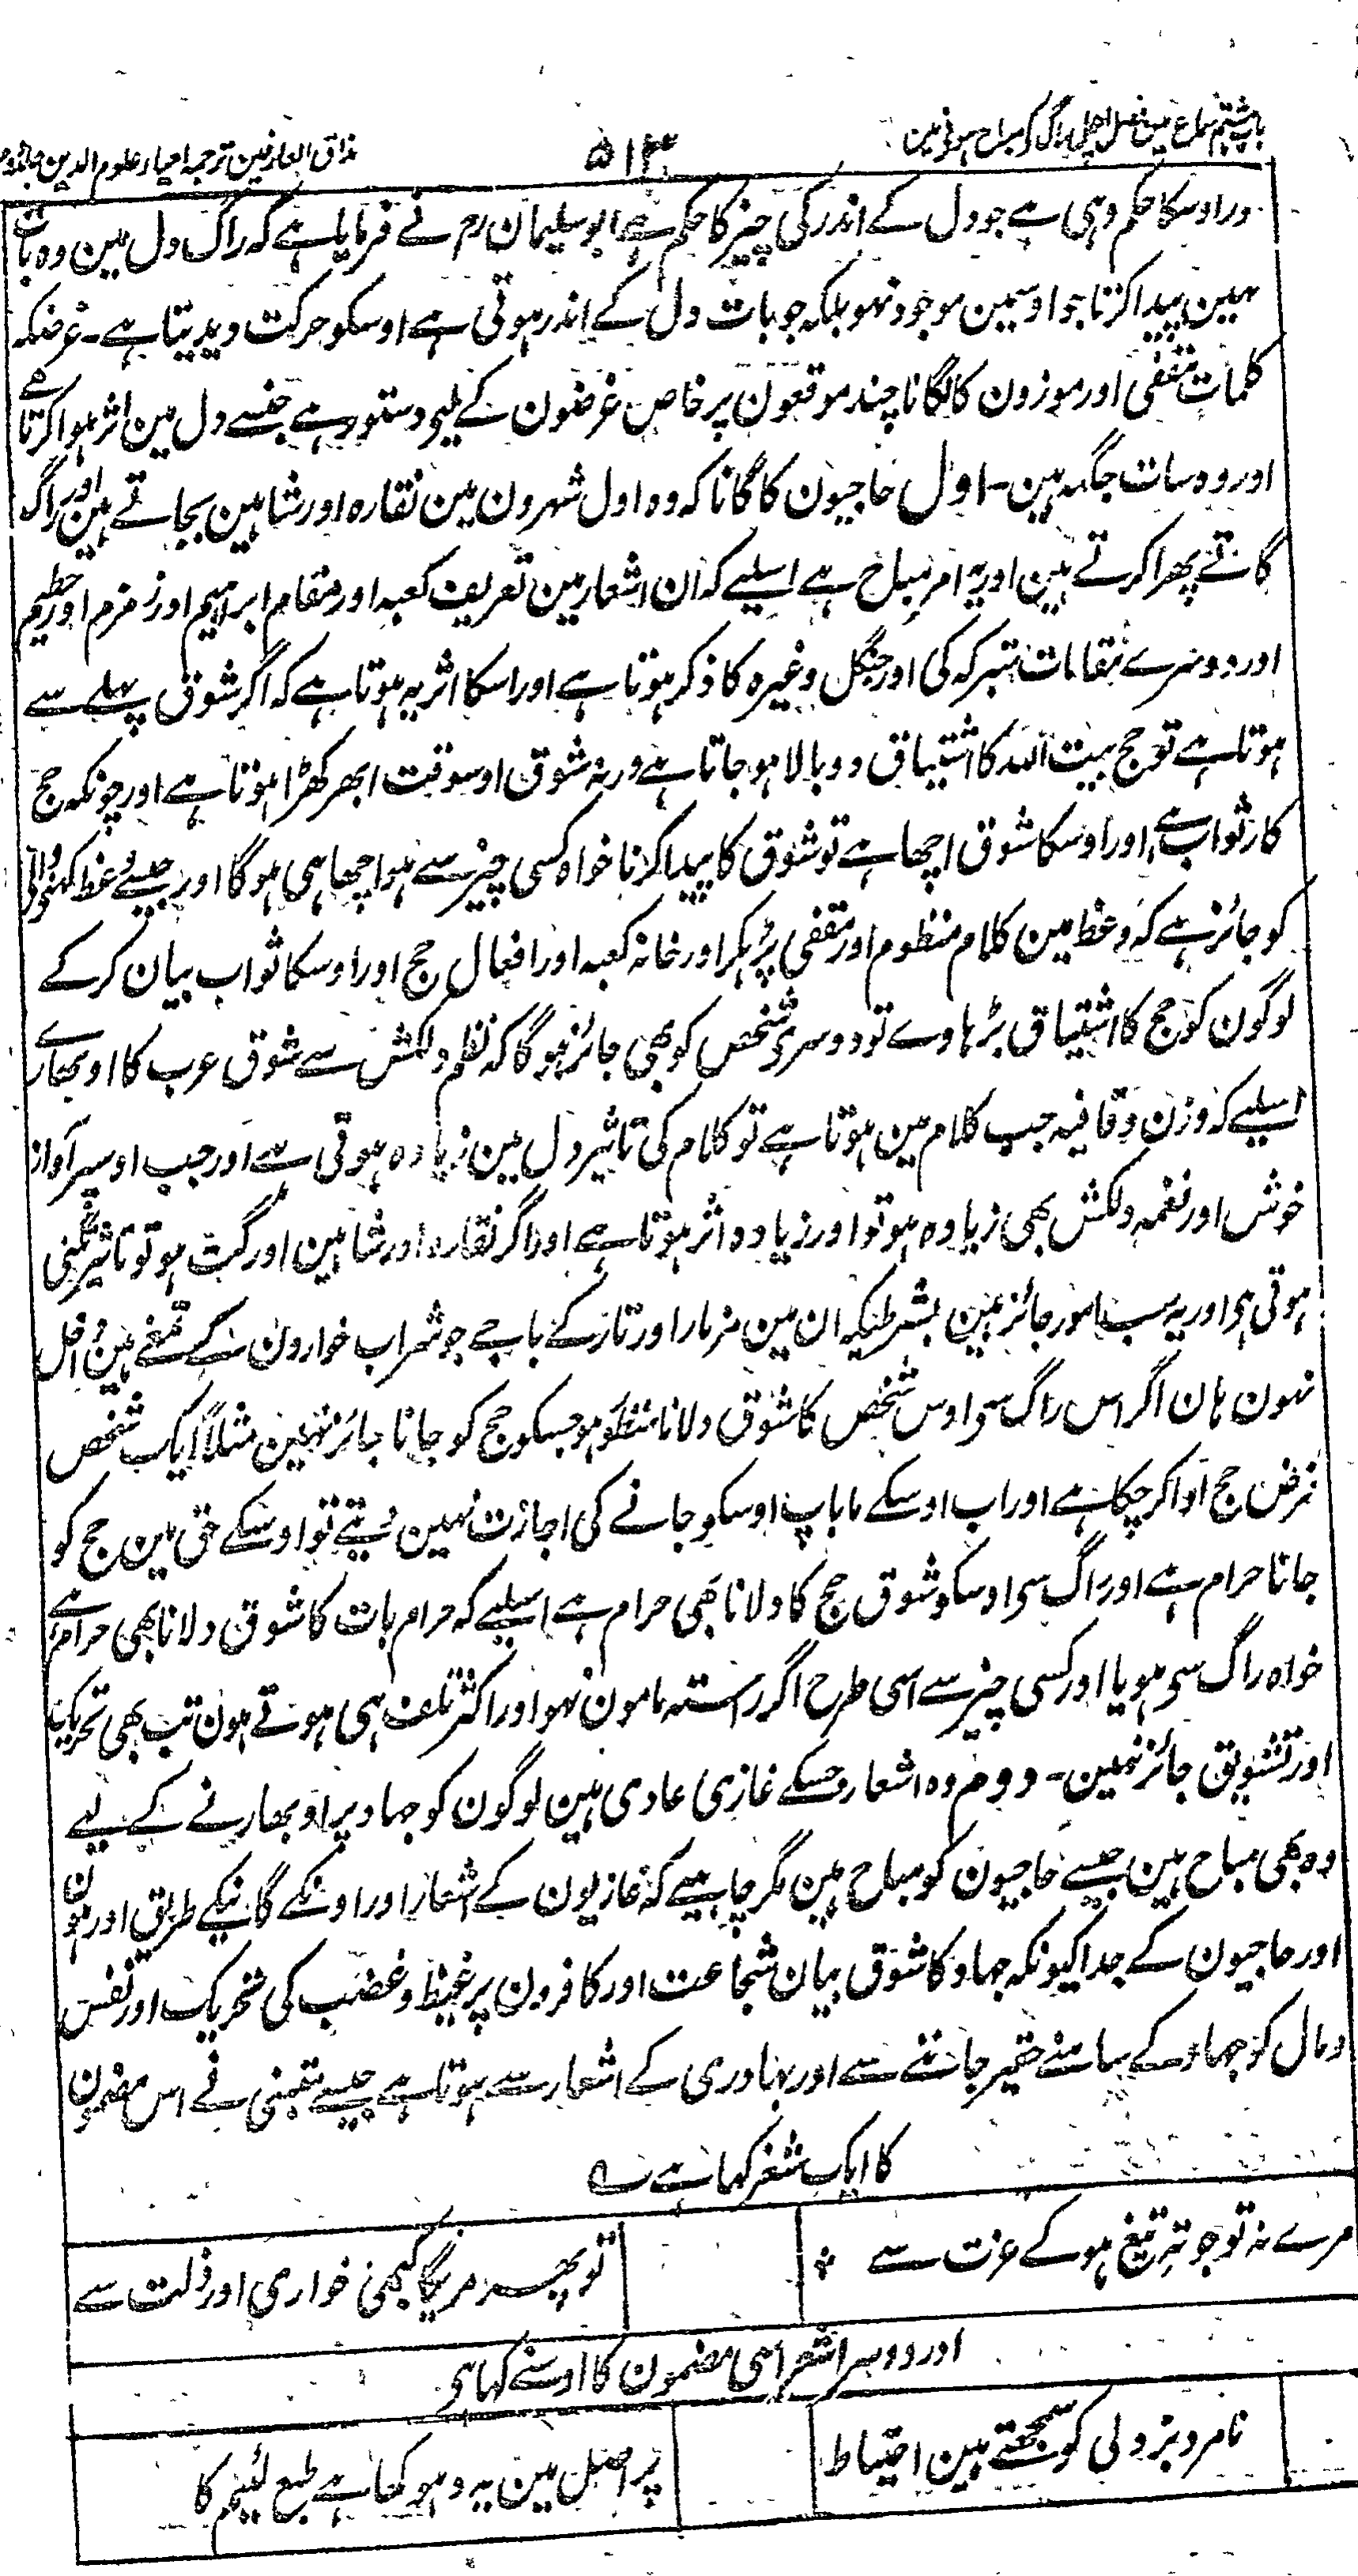 باب ہشتم سماع میں فصل اول راگ کے مباح ہونے مین
۵۱۳
مذاق العارفین ترجمہ احیاء علوم الدین جلد دوم
وراوسکا حکم وہی ہے جو دل کے اندر کی چیز کا حکم ہے ابو سلیمان رح نے فرمایا ہے کہ راگ دل مین وہ بات
نہین پیدا کرتا جو اوسمین موجود نہو بلکہ جو بات دل کے اندر ہوتی ہے اوسکو حرکت دیدیتا ہے۔ غرضکہ
کلمات مقفی اور موزون کا گانا چند موقعون پر خاص غرضون کے لیے دستور ہے جنسے دل مین اثر ہوا کرتا ہے
اور وہ سات جگہہ ہین۔ اول حاجیون کا گانا کہ وہ اول شہرون مین نقارہ اور شاہین بجاتے ہین اور راگ
گاتے پھرا کرتے ہین اور یہ امر مباح ہے اسلیے کہ ان اشعار مین تعریف کعبہ اور مقام ابراہیم اور زمزم اور حطیم
اور دوسرے مقامات متبرکہ کی اور جنگل وغیرہ کا ذکر ہوتا ہے اور اسکا اثر یہ ہوتا ہے کہ اگر شوق پہلے سے
ہوتا ہے تو حج بیت اللہ کا اشتیاق دوبالا ہو جاتا ہے ورنہ شوق اوسوقت ابھر کھڑا ہوتا ہے اور چونکہ حج
کار ثواب ہے اور اوسکا شوق اچھا ہے تو شوق کا پیدا کرنا خواہ کسی چیز سے ہوا چھا ہی ہوگا اور جیسے وعظ کہنے والے
کو جائز ہے کہ وعظ مین کلام منظوم اور مقفی پڑہکر اور خانہ کعبہ اور افعال حج اور اوسکا ثواب بیان کر کے
لوگون کو حج کا اشتیاق بڑہاوے تو دوسرے شخص کو بھی جائز ہوگا کہ نظم دلکش سے شوق عرب کا اوبھارے
اسلیے کہ وزن و قافیہ جب کلام مین ہوتا ہے تو کلام کی تاثیر دل مین زیادہ ہوتی ہے اور جب اوسپر آواز
خوش اور نغمہ دلکش بھی زیادہ ہو تو اور زیادہ اثر ہوتا ہے اور اگر نقارہ اور شاہین اور گت ہو تو تاثیر تگنی
ہوتی ہی اور یہ سب امور جائز ہین بشرطیکہ ان مین مزمار اور تار کے باجے جو شراب خوارون کے تمغے ہین داخل
نہون ہان اگر اس راگ سی اوس شخص کا شوق دلانا منظور ہو جسکو حج کو جانا جائز نہین مثلاً ایک شخص
فرض حج ادا کر چکا ہے اور اب اوسکے ما باپ اوسکو جانے کی اجازت نہین دیتے تو اوسکے حق مین حج کو
جانا حرام ہے اور راگ سی اوسکو شوق حج کا دلانا بھی حرام ہے اسلیے کہ حرام بات کا شوق دلانا بھی حرام ہے
خواہ راگ سی ہو یا اور کسی چیز سے اسی طرح اگر راستہ مامون نہو اور اکثر تلف ہی ہوتے ہون تب بھی تحریک
اور تشویق جائز نہین۔ دوم وہ اشعار جسکے غازی عادی ہین لوگون کو جہاد پر اوبھارنے کے لیے
وہ بھی مباح ہین جیسے حاجیون کو مباح ہین مگر چاہیے کہ غازیون کے اشعار اور اونکے گانیکے طریق اور ہون
اور حاجیون کے جدا کیونکہ جہاد کا شوق بیان شجاعت اور کافرون پر غیظ و غضب کی تحریک اور نفس
ومال کو جہاد کے سامنے حقیر جاننے سے اور بہادری کے اشعار سے ہوتا ہے جیسے متنبی نے اس مضمون
کا ایک شعر کہا ہے ؎
مرے نہ تو جو تہ تیغ ہو کے عزت سے ؞ تو پھر مریگا کبھی خواری اور ذلت سے
اور دوسرا شعر اسی مضمون کا اوسنے کہا ہی
نامرد بزدلی کو سمجھتے ہین احتیاط پر اصل مین یہ دہوکھا ہے طبع لئیم کا